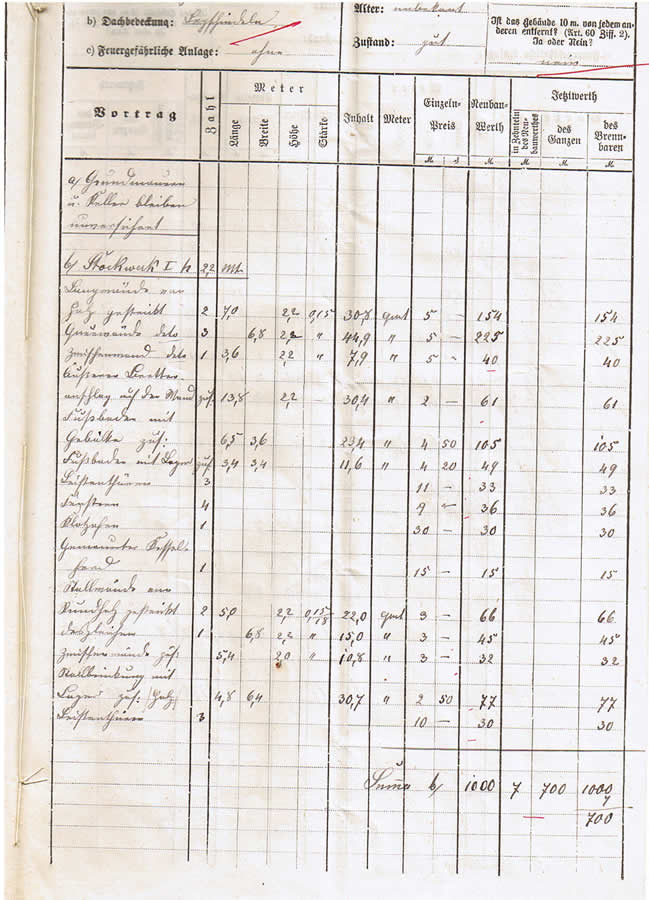 b) Dachbedeckung: Legschindeln
c) Feuergefährliche Anlage: ohne
Alter: unbekannt
Zustand: gut
Ist das Gebäude 10 m. von jedem an-
deren entfernt? (Art. 60 Ziff. 2).
Ja oder Nein?
nein
Vortrag Zahl Meter Länge Breite Höhe Stärke Inhalt Meter Einzeln-Preis Neubau-Werth Jetztwerth in Zehnteln des Neu-bauwerthes des Ganzen des Brenn-baren
M. ₰ M. M. M.
a) Grundmauern
u. Keller bleiben
unversichert
b) Stockwerk I h 2,2 Mt.
Langwände von
Holz gestrickt 2 7,0 2,2 0,15 30,8 qmt 5 — 154 154
Querwände deto 3 6,8 2,2 " 44,9 " 5 — 225 225
Zwischenwand deto 1 3,6 2,2 " 7,9 " 5 — 40 40
Äußerer Bretter
anschlag auf der Wand zus. 13,8 2,2 30,4 " 2 — 61 61
Fußboden mit
Gebälke zus: 6,5 3,6 23,4 " 4 50 105 105
Fußboden mit Lager zus 3,4 3,4 11,6 " 4 20 49 49
Leistenthüren 3 11 — 33 33
Fenstern 4 9 — 36 36
1 30 — 30 30
Gemauerter Kessel-
herd 1 15 — 15 15
Stallwände von
Rundholz gestrickt 2 5,0 2,2 0,15/18 22,0 qmt 3 — 66 66
desgleichen 1 6,8 2,2 " 15,0 " 3 — 45 45
Zwischenwände zus. 5,4 2,0 " 10,8 " 3 — 32 32
mit
Lager zus: Holz 4,8 6,4 30,7 " 2 50 77 77
Leistenthüren 3 10 — 30 30
Summa b) 1000 7 700 1000
7
700